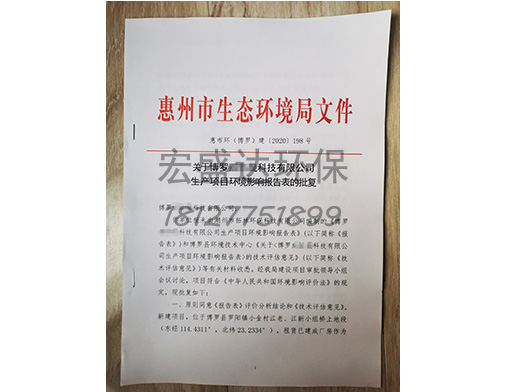 惠州市生态环境局文件
惠市环（博罗）建〔2020〕198号
宏盛达环保
关于博罗 科技有限公司
生产项目环境影响报告表的批复
博罗 科技有限公司：
18127751899
科技有限公司生产项目环境影响报告表》（以下简称《报
告表》）和博罗县环境技术中心《关于<博罗 科技有限公
司生产项目环境影响报告表>的技术评估意见》（以下简称《技
术评估意见》）等有关材料收悉。经我局建设项目审批领导小组
会议讨论，项目符合《中华人民共和国环境影响评价法》的规
定，现批复如下：
一、原则同意《报告表》评价分析结论和《技术评估意见》。
新建项目，位于博罗县罗阳镇小金村江老、江新小组桥上地段
（东经 114.4311°，北纬 23.2334°），租赁已建成厂房作为